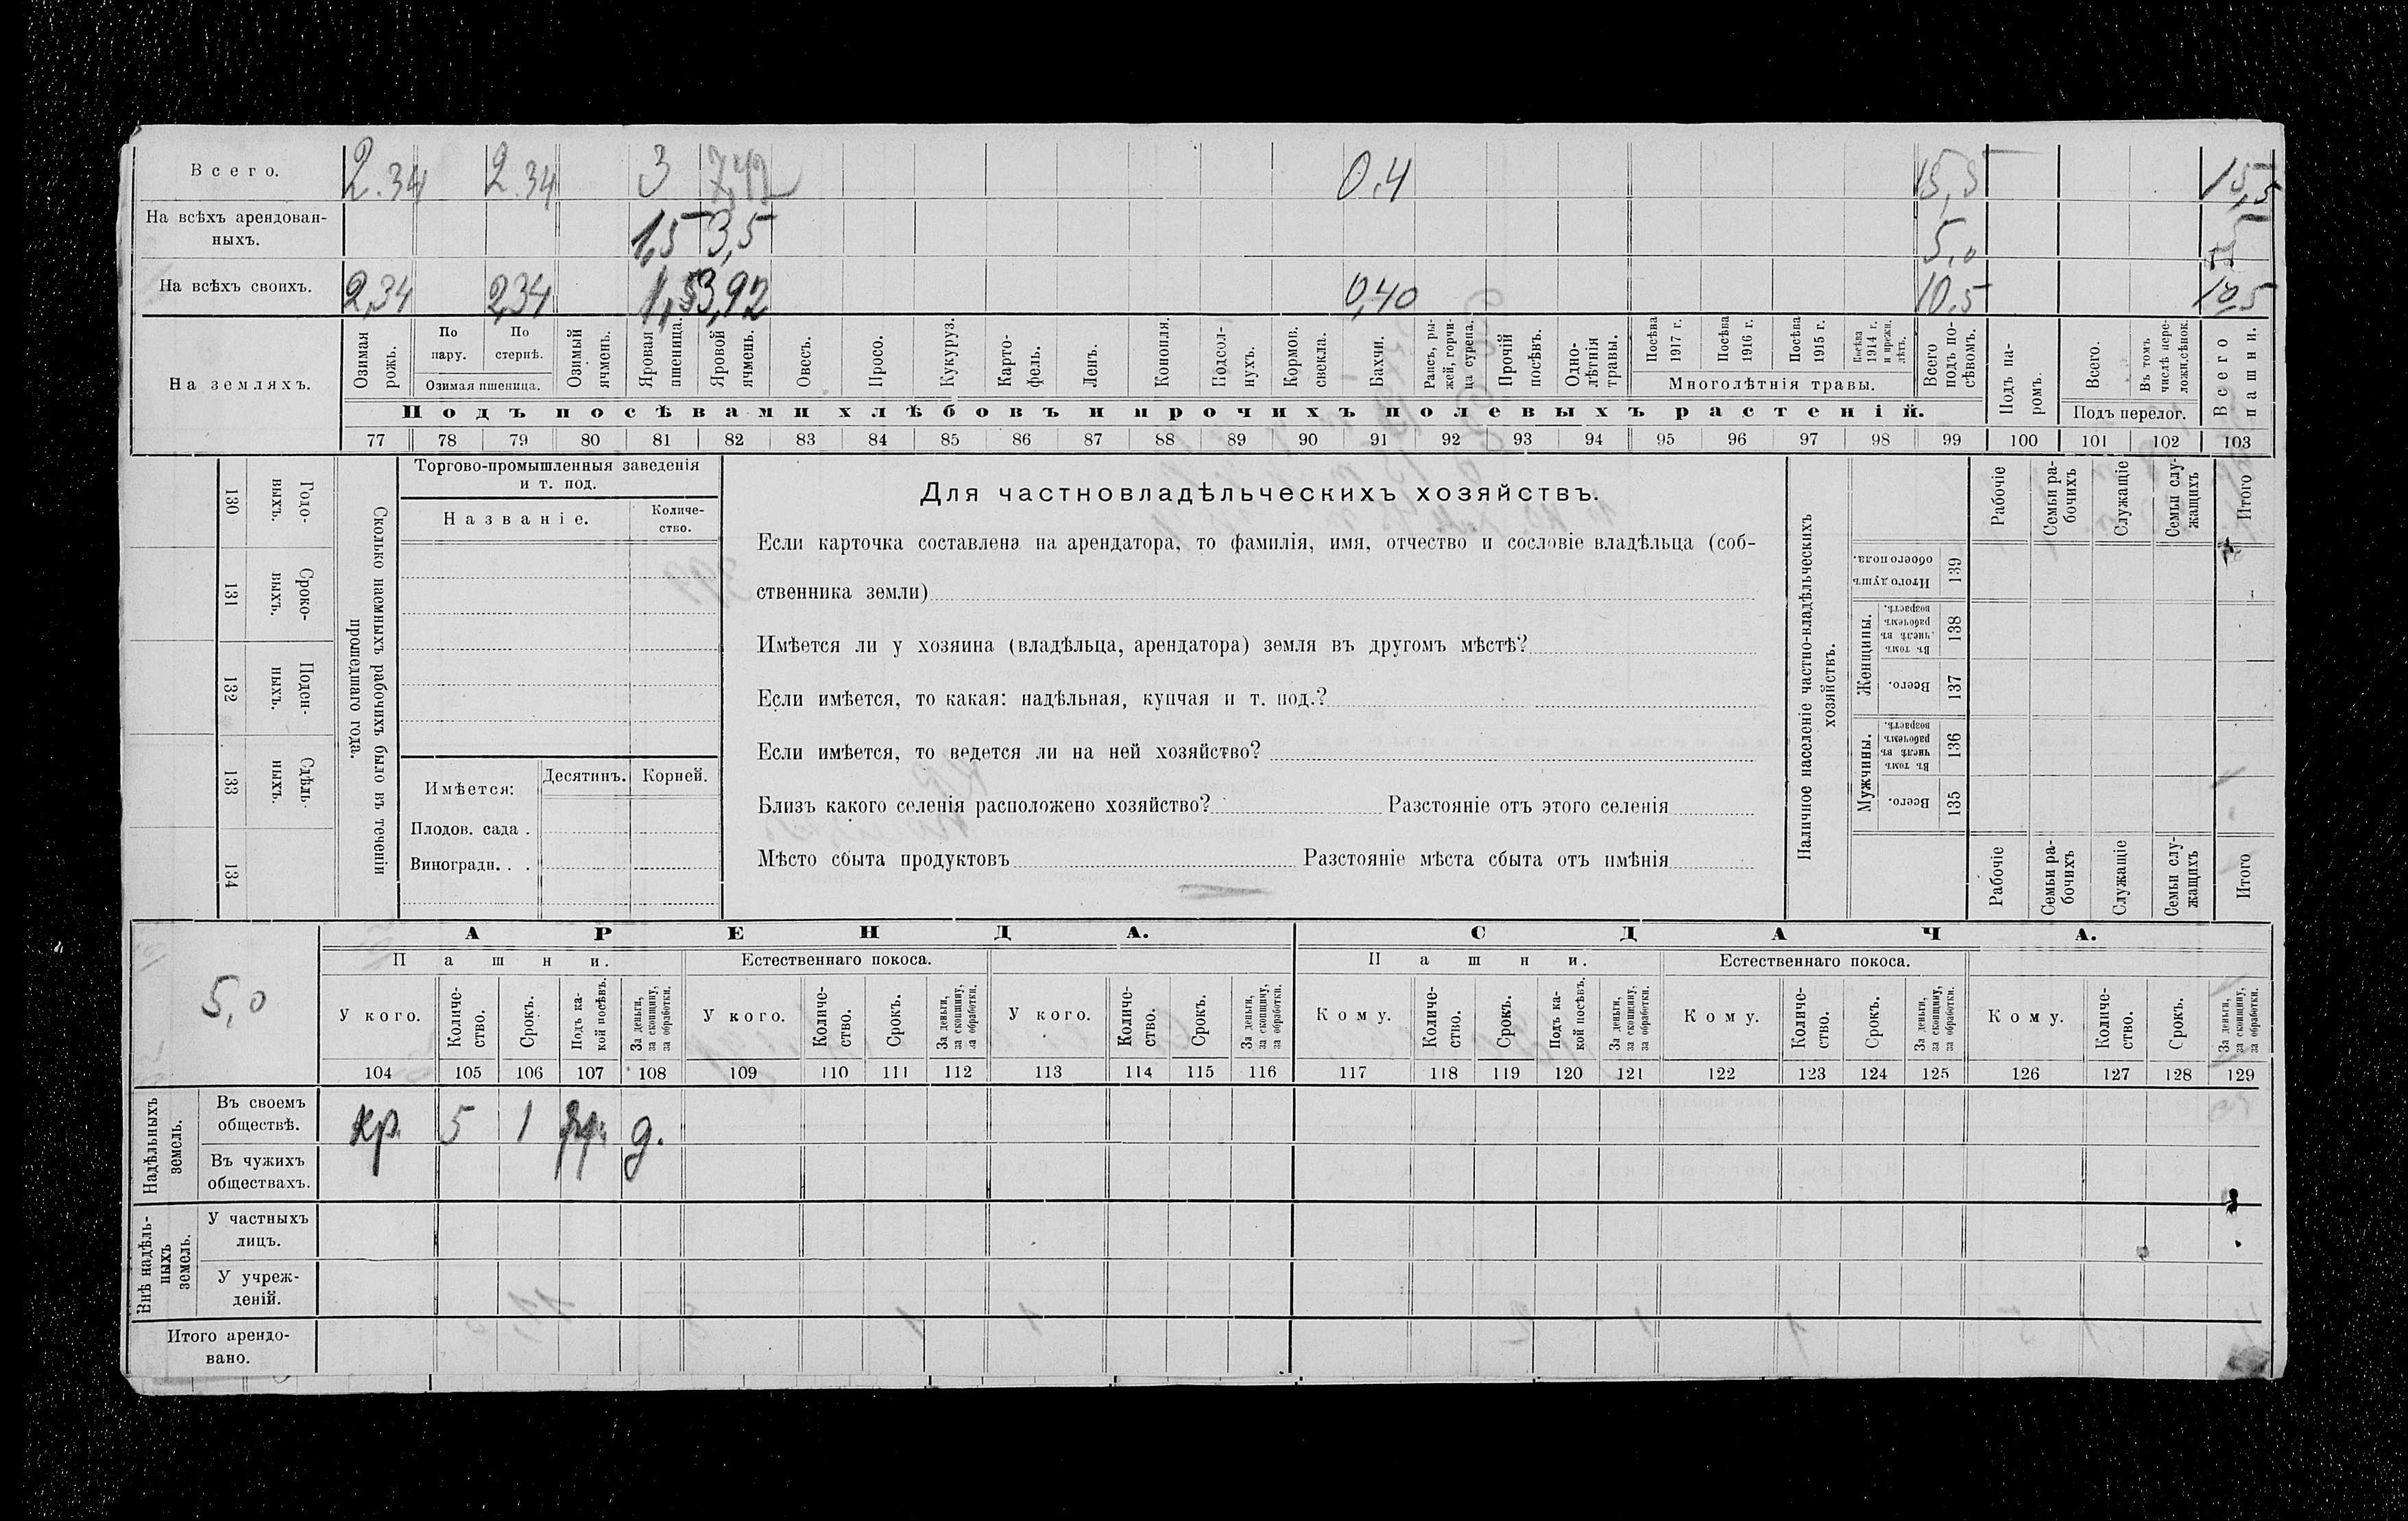 Всего. 2.34 2.34 3 7,42 0.4 15,5 15,5
На всѣхъ арендован-
ныхъ. 1,5 3,5 5,0
На всѣхъ своихъ. 2,34 2,34 1,5 3,92 0,40 10.5 10,5
На земляхъ.
Озимая рожь.
По пару.
По стернѣ.
Озимая пшеница.
Озимый ячмень.
Яровая пшеница.
Яровой ячмень.
Овесъ.
Просо.
Кукуруз.
Карто-
фель.
Ленъ.
Конопля.
Подсол-
нухъ.
Кормов.
свекла.
Бахчи.
Рапсъ, ры-
жей, горчи-
ца сурепа.
Прочій
посѣвъ.
Одно-
лѣтнія
травы.
Посѣва
1917 г.
Посѣва
1916 г.
Посѣва
1915 г.
Посѣва
1914 г.
и прежн.
лѣтъ.
Многолѣтнія травы.
Всего
подъ по-
сѣвомъ.
Подъ па-
ромъ.
Всего.
Въ томъ
числѣ пере-
ложн.сѣнок.
Подъ перелог.
Всего
пашни.
Подъ посѣвами хлѣбовъ и прочихъ полевыхъ растеній.
77 78 79 80 81 82 83 84 85 86 87 88 89 90 91 92 93 94 95 96 97 98 99 100 101 102 103
130 Годо-
выхъ.
131 Сроко-
выхъ.
132 Поден-
ныхъ.
133 Сдѣль-
ныхъ.
134
Сколько наемныхъ рабочихъ было въ теченіи
прошедшаго года.
Торгово-промышленныя заведенія
и т. под.
Названіе.
Количе-
ство.
Имѣется: Десятинъ. Корней.
Плодов. сада .
Виноградн. . .
Для частновладѣльческихъ хозяйствъ.
Если карточка составлена на арендатора, то фамилія, имя, отчество и сословіе владѣльца (соб-
ственника земли)
Имѣется ли у хозяина (владѣльца, арендатора) земля въ другомъ мѣстѣ?
Если имѣется, то какая: надѣльная, купчая и т. под.?
Если имѣется, то ведется ли на ней хозяйство?
Близъ какого селенія расположено хозяйство? Разстояніе отъ этого селенія
Мѣсто сбыта продуктовъ Разстояніе мѣста сбыта отъ имѣнія
Наличное населеніе частно-владѣльческихъ
хозяйствъ.
Рабочіе
Семьи ра-
бочихъ
Служащіе
Семьи слу-
жащихъ
Итого
Итого душъ
обоего пола.
139
Женщины.
Въ томъ
числѣ въ
рабочемъ
возрастѣ.
138
Всего.
137
Мужчины.
Въ томъ
числѣ въ
рабочемъ
возрастѣ.
136
Всего.
135
Рабочіе
Семьи ра-
бочихъ
Служащіе
Семьи слу-
жащихъ
Итого
5,0
АРЕНДА. СДАЧА.
Пашни. Естественнаго покоса. Пашни. Естественнаго покоса.
У кого.
Количе-
ство.
Срокъ.
Подъ ка-
кой посѣвъ.
За деньги,
за скопщину,
за обработки.
У кого.
Количе-
ство.
Срокъ.
За деньги,
за скопщину,
за обработки.
У кого.
Количе-
ство.
Срокъ.
За деньги,
за скопщину,
за обработки.
Кому.
Количе-
ство.
Срокъ.
Подъ ка-
кой посѣвъ.
За деньги,
за скопщину,
за обработки.
Кому.
Количе-
ство.
Срокъ.
За деньги,
за скопщину,
за обработки.
Кому.
Количе-
ство.
Срокъ.
За деньги,
за скопщину,
за обработки.
104 105 106 107 108 109 110 111 112 113 114 115 116 117 118 119 120 121 122 123 124 125 126 127 128 129
Надѣльныхъ
земель.
Въ своемъ
обществѣ. кр. 5 1 д.
Въ чужихъ
обществахъ.
Внѣ надѣль-
ныхъ
земель.
У частныхъ
лицъ.
У учреж-
деній.
Итого арендо-
вано.